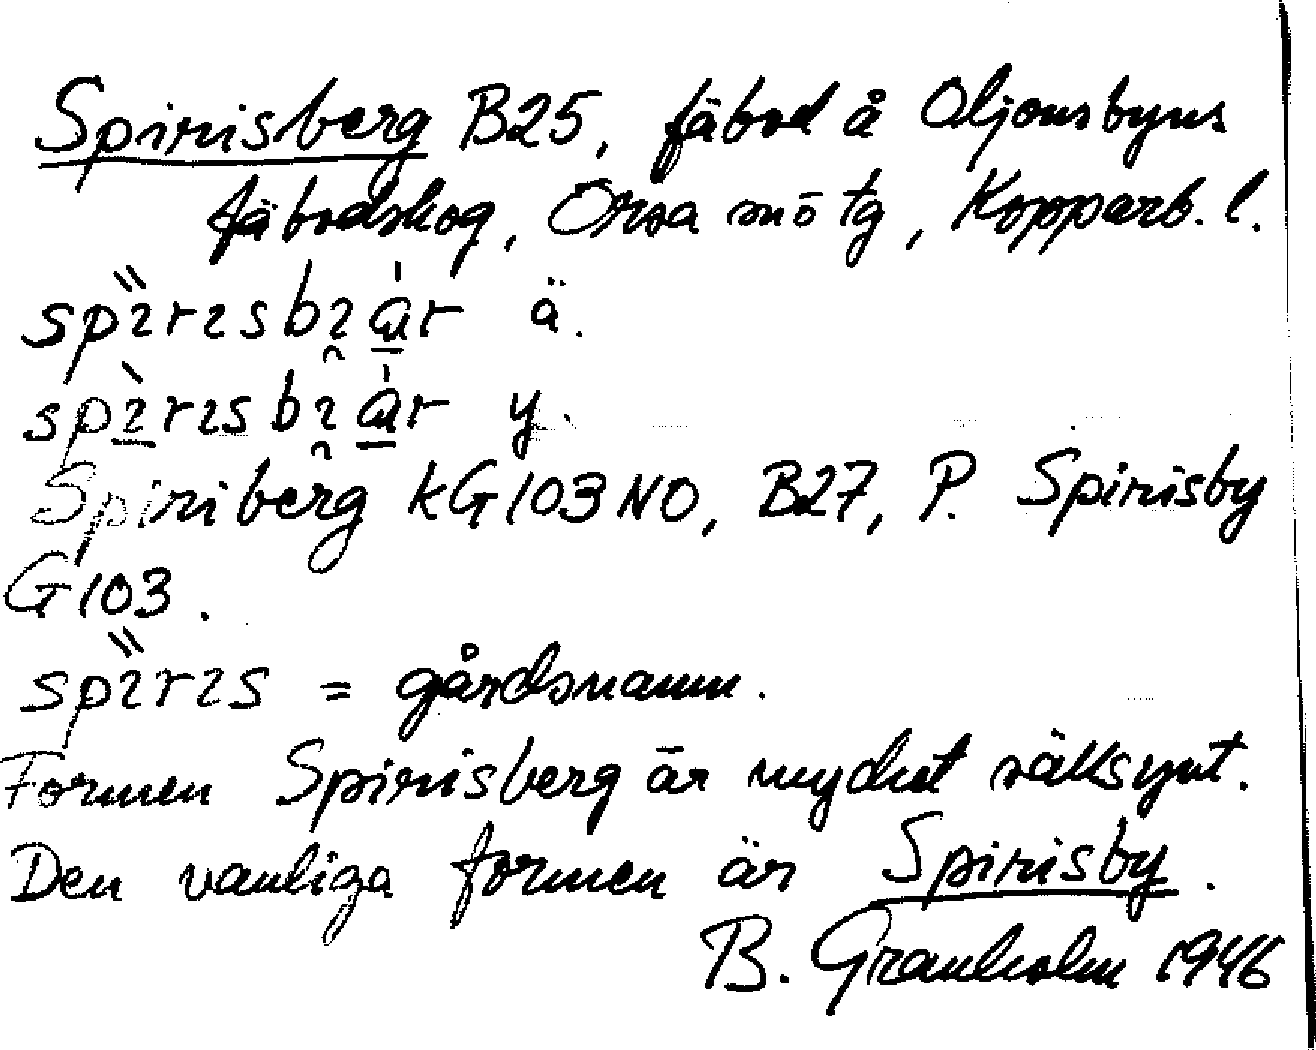 Spirisberg B25, fäbod å Oljonsbyns
fäbodskog, Orsa sn ö tg, Kopparb. l.
ä.
y.
Spiriberg kG103NO, B27, P. Spirisby
G103.
= gårdsnamn.
Formen Spirisberg är mycket sällsynt.
Den vanliga formen är Spirisby.
B. Granholm 1946